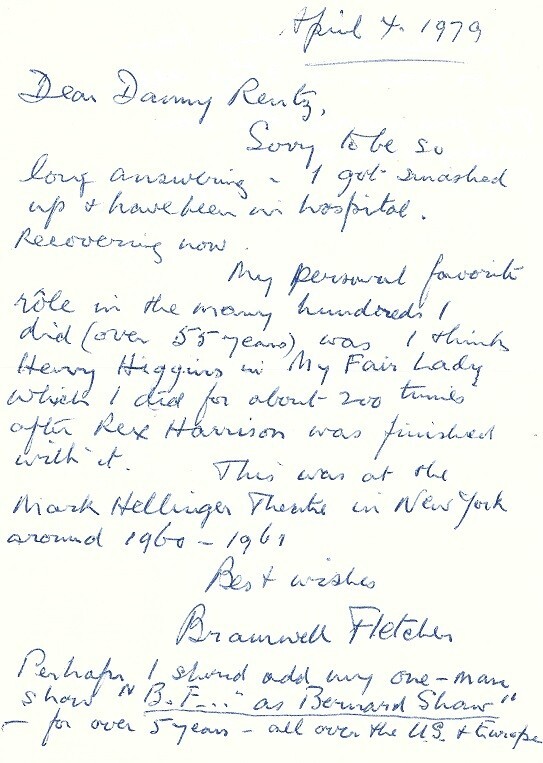 April 4. 1979
Dear Danny Rentz,
Sorry to be so
long answering - I got smashed
up & have been in hospital.
Recovering now.
My personal favorite
rôle in the many hundreds I
did (over 55 years) was I think
Henry Higgins in My Fair Lady
which I did for about 200 times
after Rex Harrison was finished
with it. This was at the
Mark Hellinger Theatre in New York
around 1960 - 1961
Best wishes
Bramwell Fletcher
Perhaps I should add my one-man
show "B.F... as Bernard Shaw"
- for over 5 years - all over the U.S. & Europe